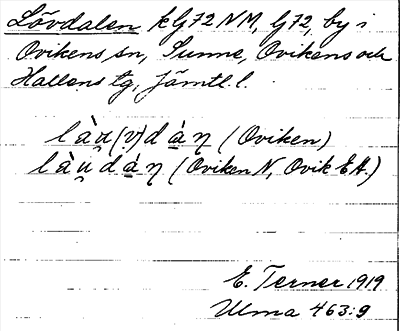 Lövdalen kG72NM, G72, by i
Ovikens sn, Sunne, Ovikens och
Hallens tg, Jämtl. l.
làu̯(v)dàn̥ (Oviken)
làu̯dàn̥ (Oviken N, Ovik EA.)
E. Terner 1919
Ulma 463:9